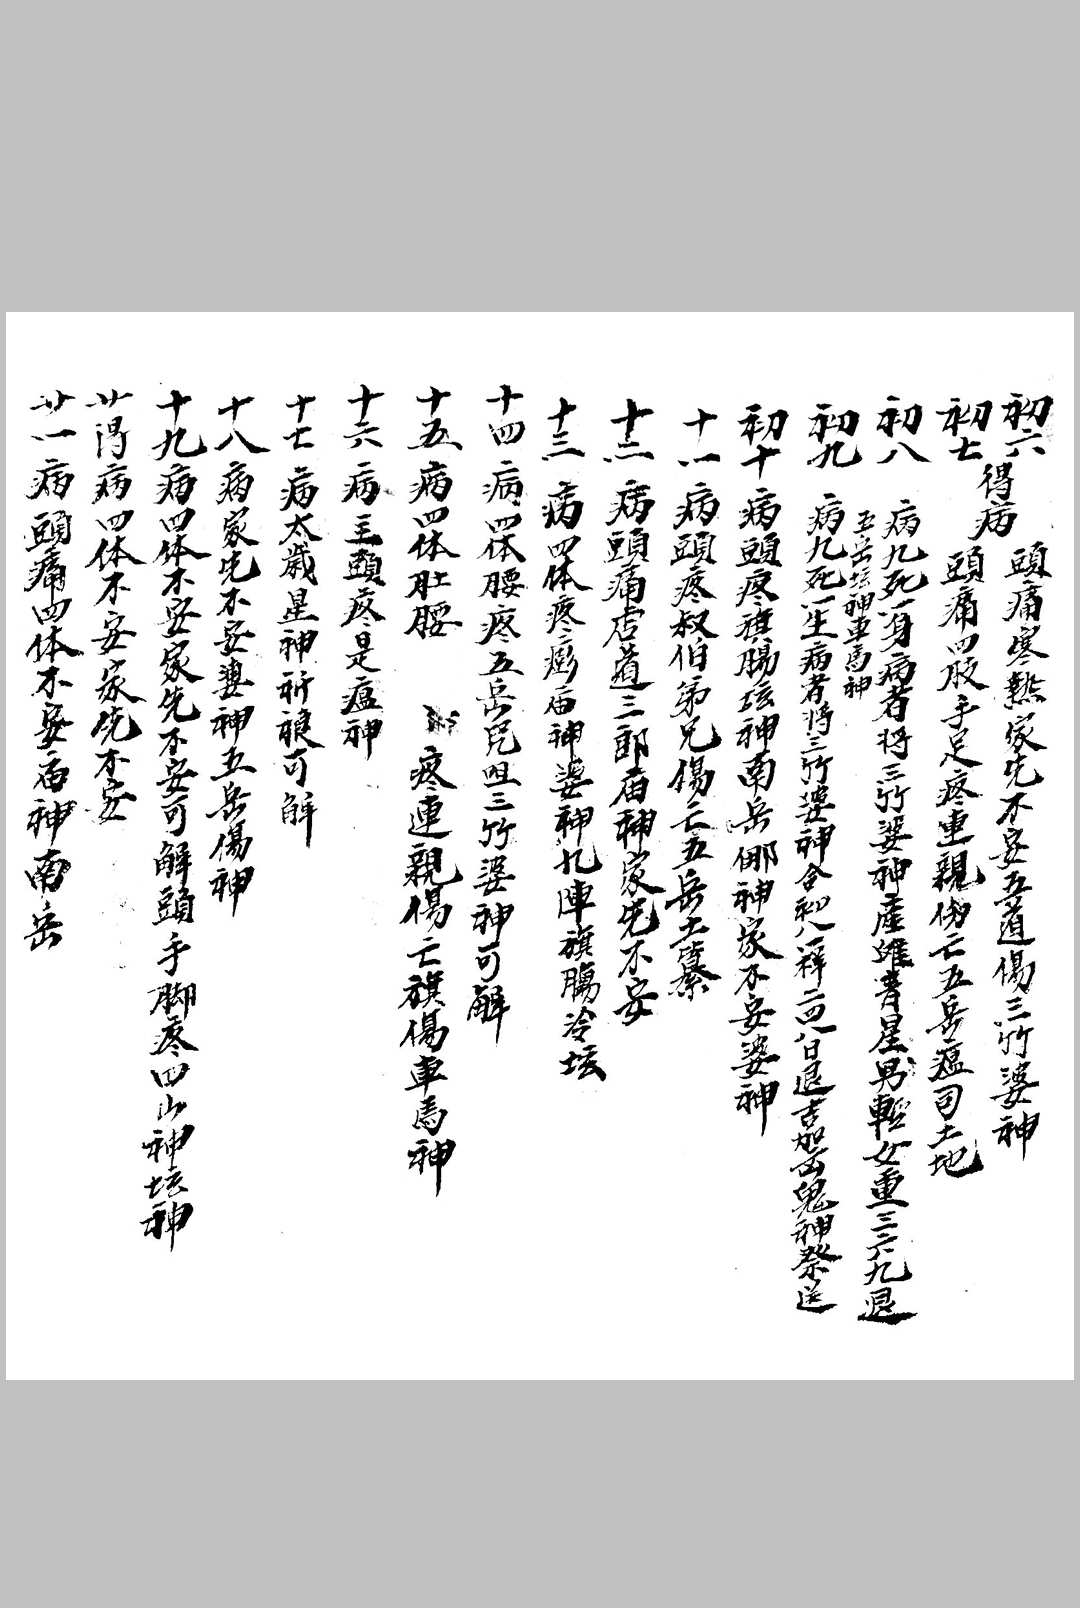 初六得病 頭痛寒熱家先不安五道傷三竹婆神
初七 頭痛四肢手足疼重親傷亡五岳瘟司土地
初八 病九死一身病者将三竹婆神產雄青星男輕女重三六九退
五岳坛神車馬神
初九 病九死一生病者将三竹婆神合初八一祥二四八日退吉加五鬼神祭送
初十 病頭疼旗腸坛神南岳挪神家不安婆神
十一 病頭疼叔伯弟兄傷亡五岳土
十二 病頭痛店道三郎庙神家先不安
十三 病四体疼膨庙神婆神九陣旗腸冷坛
十四 病四体腰疼五岳咒咀三竹婆神可解
十五 病四体肚腰 疼連親傷亡旗傷車馬神
十六 病主頭疼是瘟神
十七 病太歲星神祈禳可解
十八 病家先不安婆神五岳傷神
十九 病四体不安家先不安可解頭手脚疼四山神坛神
廿得病四体不安家先不安
廿一病頭痛四体不安庙神南岳